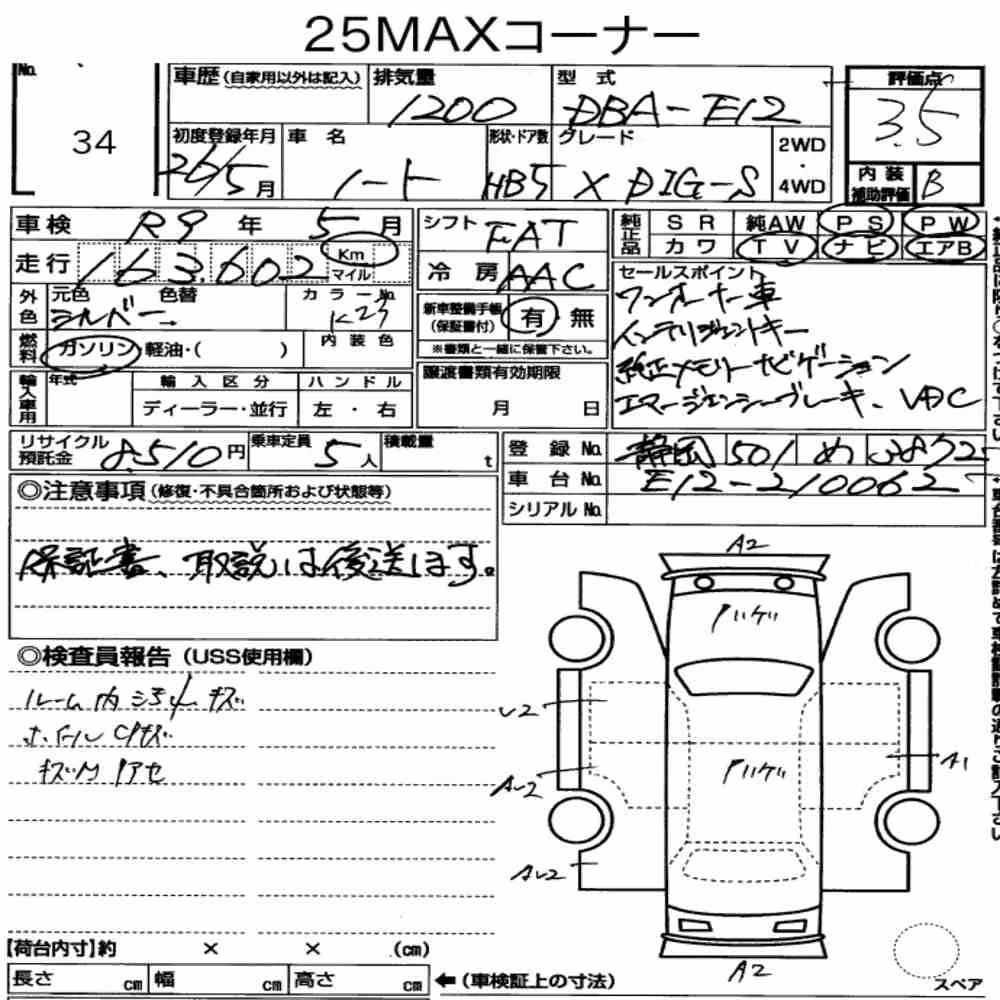 25MAXコーナー
No.
34
車歴(自家用以外は記入)
排気量
1200
型式
DBA-E12
評価点
3.5
初度登録年月
26/5月
車名
ノート
形状・ドア数
HB5
グレード
X DIG-S
2WD
・
4WD
内装
補助評価
B
車検 R9年 5月
シフト
FAT
純正品
SR 純AW PS PW
カワ TV ナビ エアB
走行 163,602 Km
マイル
冷房 AAC
セールスポイント
ワンオーナー車
インテリジェントキー
純正メモリーナビゲーション
エマージェンシーブレーキ、VDC
外色
元色 色替
シルバー
カラーNo.
K23
新車整備手帳
(保証書付)
有・無
※書類と一緒に保管下さい。
燃料
ガソリン・軽油・( )
内装色
輸入車用
年式
輸入区分
ディーラー・並行
ハンドル
左・右
譲渡書類有効期限
月 日
リサイクル
預託金
8,510円
乗車定員
5人
積載量
t
登録No. 静岡 501 め 3872
車台No. E12-210062
シリアルNo.
◎注意事項(修復・不具合箇所および状態等)
保証書、取説は後送します。
◎検査員報告(USS使用欄)
ルーム内 シミ キズ
ホイール キズ
A2
ハゲ
U2
AU2
ハゲ
A1
AU2
A2
スペア
【荷台内寸】約 × × (cm)
長さ cm 幅 cm 高さ cm ←(車検証上の寸法)